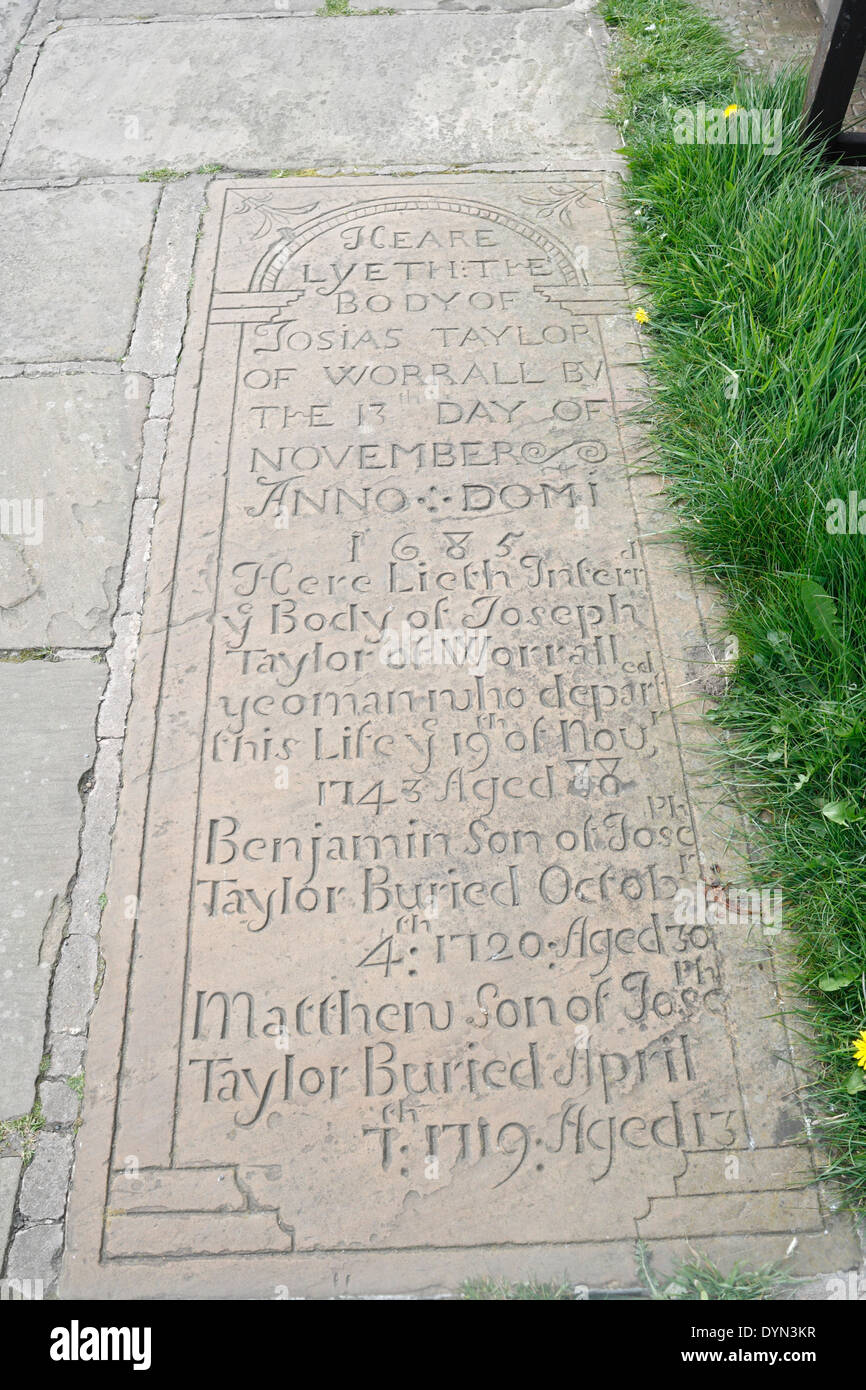 HEARE
LYETH:THE
BODY OF
IOSIAS TAYLOR
OF WORRALL BV
THE 13th DAY OF
NOVEMBER
ANNO : DOMI
1685
Here Lieth Interrd
ye Body of Joseph
Taylor of Worrall
yeoman who departed
this Life ye 19th of Novr,
1743 Aged 88
Benjamin Son of Joseph
Taylor Buried Octobr
4th: 1720: Aged 30
Matthew Son of Joseph
Taylor Buried April
7th: 1719: Aged 13
alamy
Image ID: DYN3KR
www.alamy.com